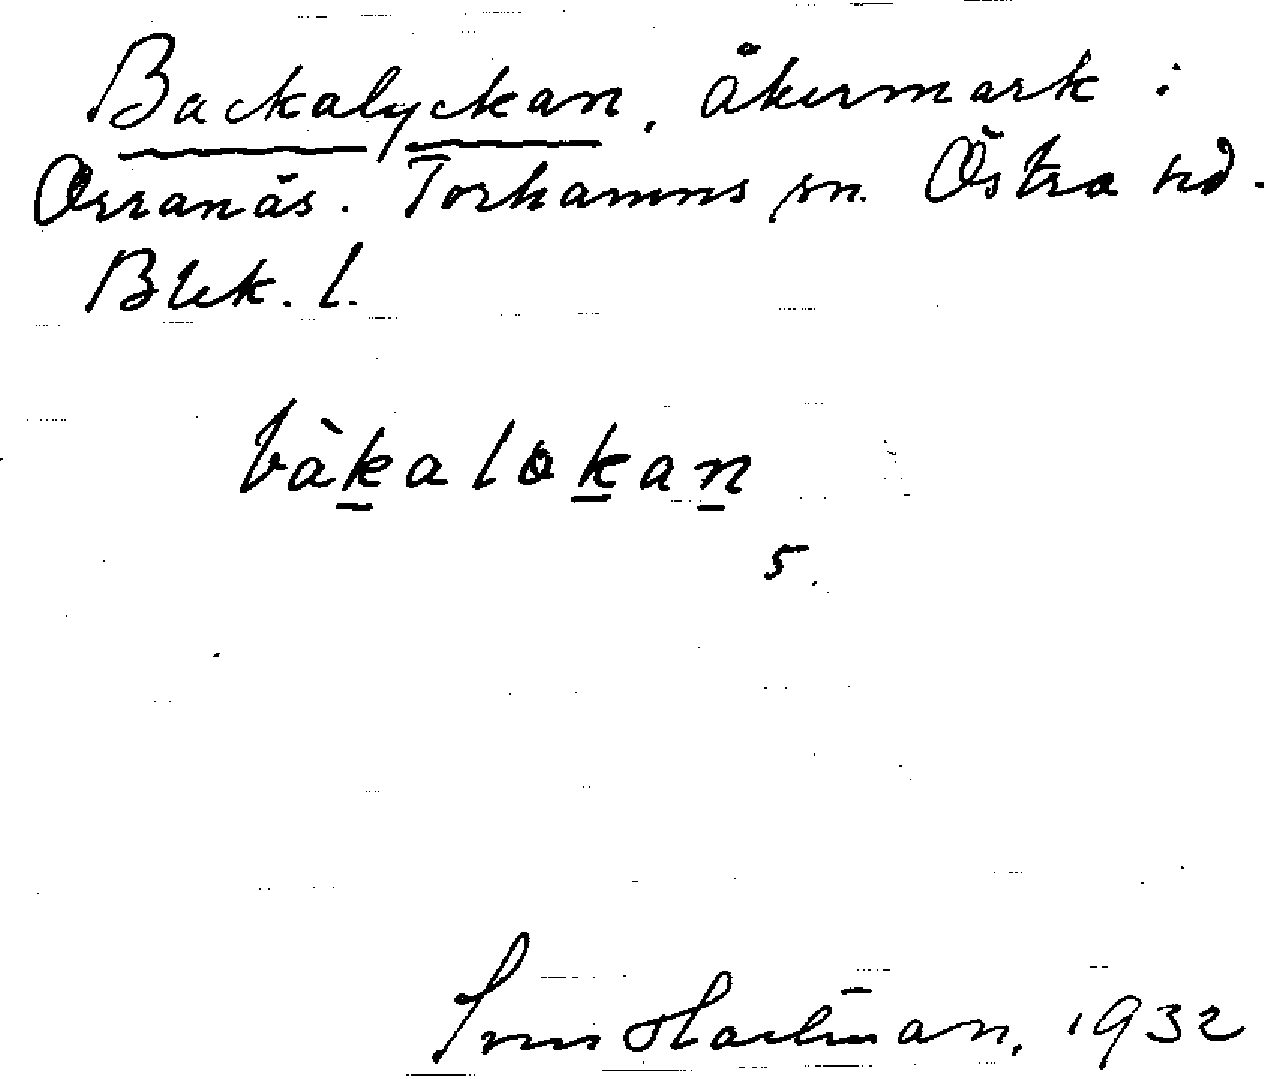 Backalyckan, åkermark i
Orranäs. Torhamns sn. Östra hd.
Blek. l.
bàkalokan
5.
Sven Hartman, 1932